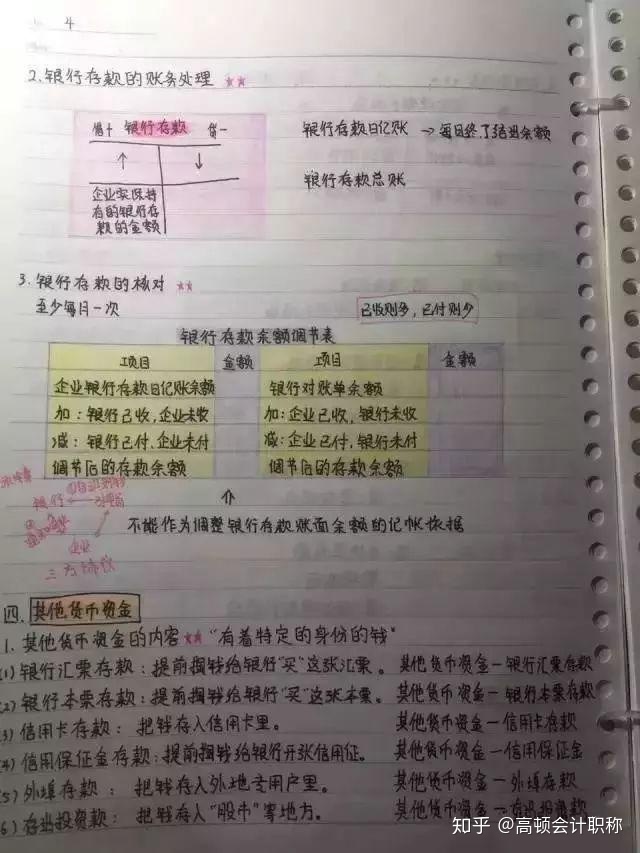 4
2.银行存款的账务处理 ★★
借+ 银行存款 贷-
↑ ↓
企业实际持
有的银行存
款的金额
银行存款日记账 → 每日终了结出余额
银行存款总账
3.银行存款的核对 ★★
至少每月一次
已收则多，已付则少
银行存款余额调节表
项目 金额 项目 金额
企业银行存款日记账余额 银行对账单余额
加：银行已收，企业未收 加：企业已收，银行未收
减：银行已付、企业未付 减：企业已付，银行未付
调节后的存款余额 调节后的存款余额
不能作为调整银行存款账面余额的记帐依据
银行
企业
三方协议
四.其他货币资金
1.其他货币资金的内容★★"有着特定的身份的钱"
(1)银行汇票存款：提前搁钱给银行"买"这张汇票。 其他货币资金—银行汇票存款
(2)银行本票存款：提前搁钱给银行"买"这张本票。 其他货币资金—银行本票存款
(3)信用卡存款： 把钱存入信用卡里。 其他货币资金—信用卡存款
(4)信用保证金存款：提前搁钱给银行开张信用证。 其他货币资金—信用保证金
(5)外埠存款： 把钱存入外地专用户里。 其他货币资金—外埠存款
(6)存出投资款： 把钱存入"股市"等地方。 其他货币资金—存出投资款
知乎 @高顿会计职称